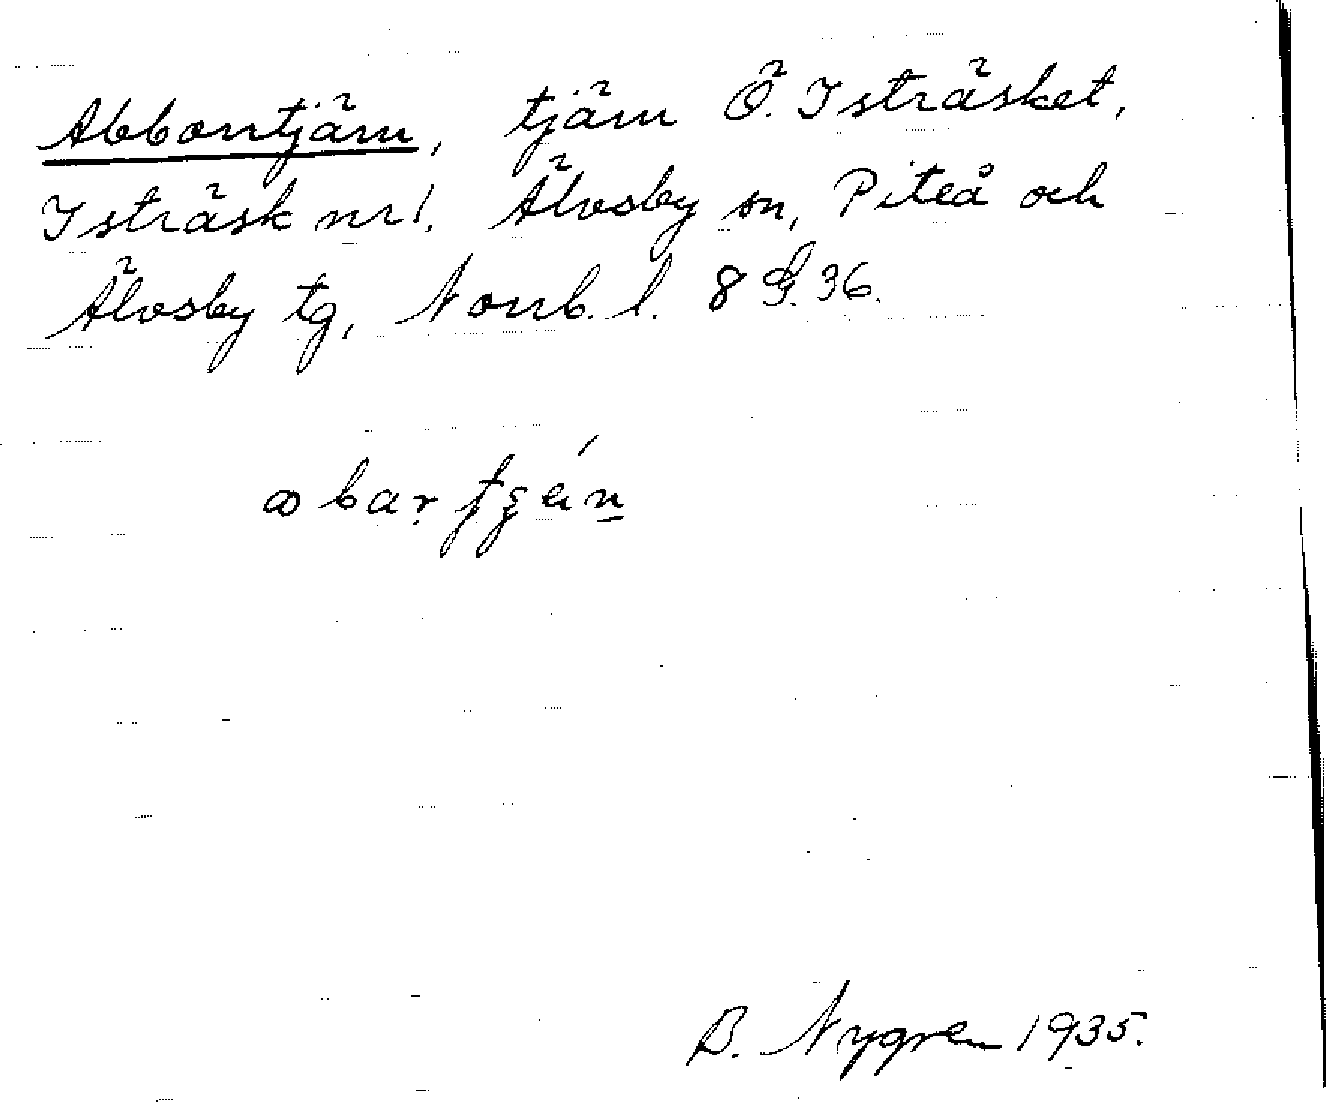 Abborrtjärn, tjärn Ö. Isträsket,
Isträsk nr 1. Älvsby sn, Piteå och
Älvsby tg, Norrb. l. 8 G. 36.
B. Nygren 1935.